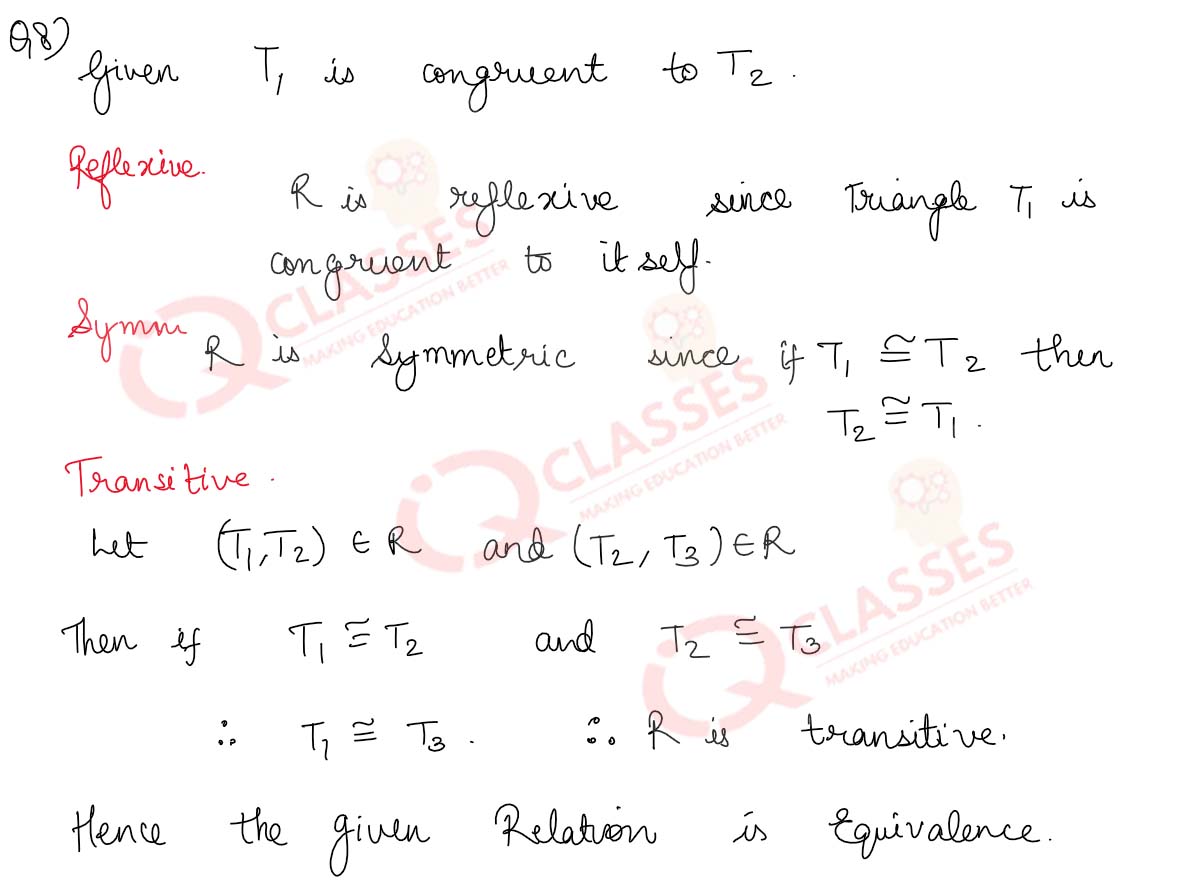 Q8)
Given T₁ is congruent to T₂.
Reflexive.
R is reflexive since Triangle T₁ is
congruent to itself.
Symm
R is Symmetric since if T₁ ≅ T₂ then
T₂ ≅ T₁.
Transitive.
Let (T₁, T₂) ∈ R and (T₂, T₃) ∈ R
Then if T₁ ≅ T₂ and T₂ ≅ T₃
∴ T₁ ≅ T₃. ∴ R is transitive.
Hence the given Relation is Equivalence.
iQ CLASSES
MAKING EDUCATION BETTER
iQ CLASSES
MAKING EDUCATION BETTER
iQ CLASSES
MAKING EDUCATION BETTER